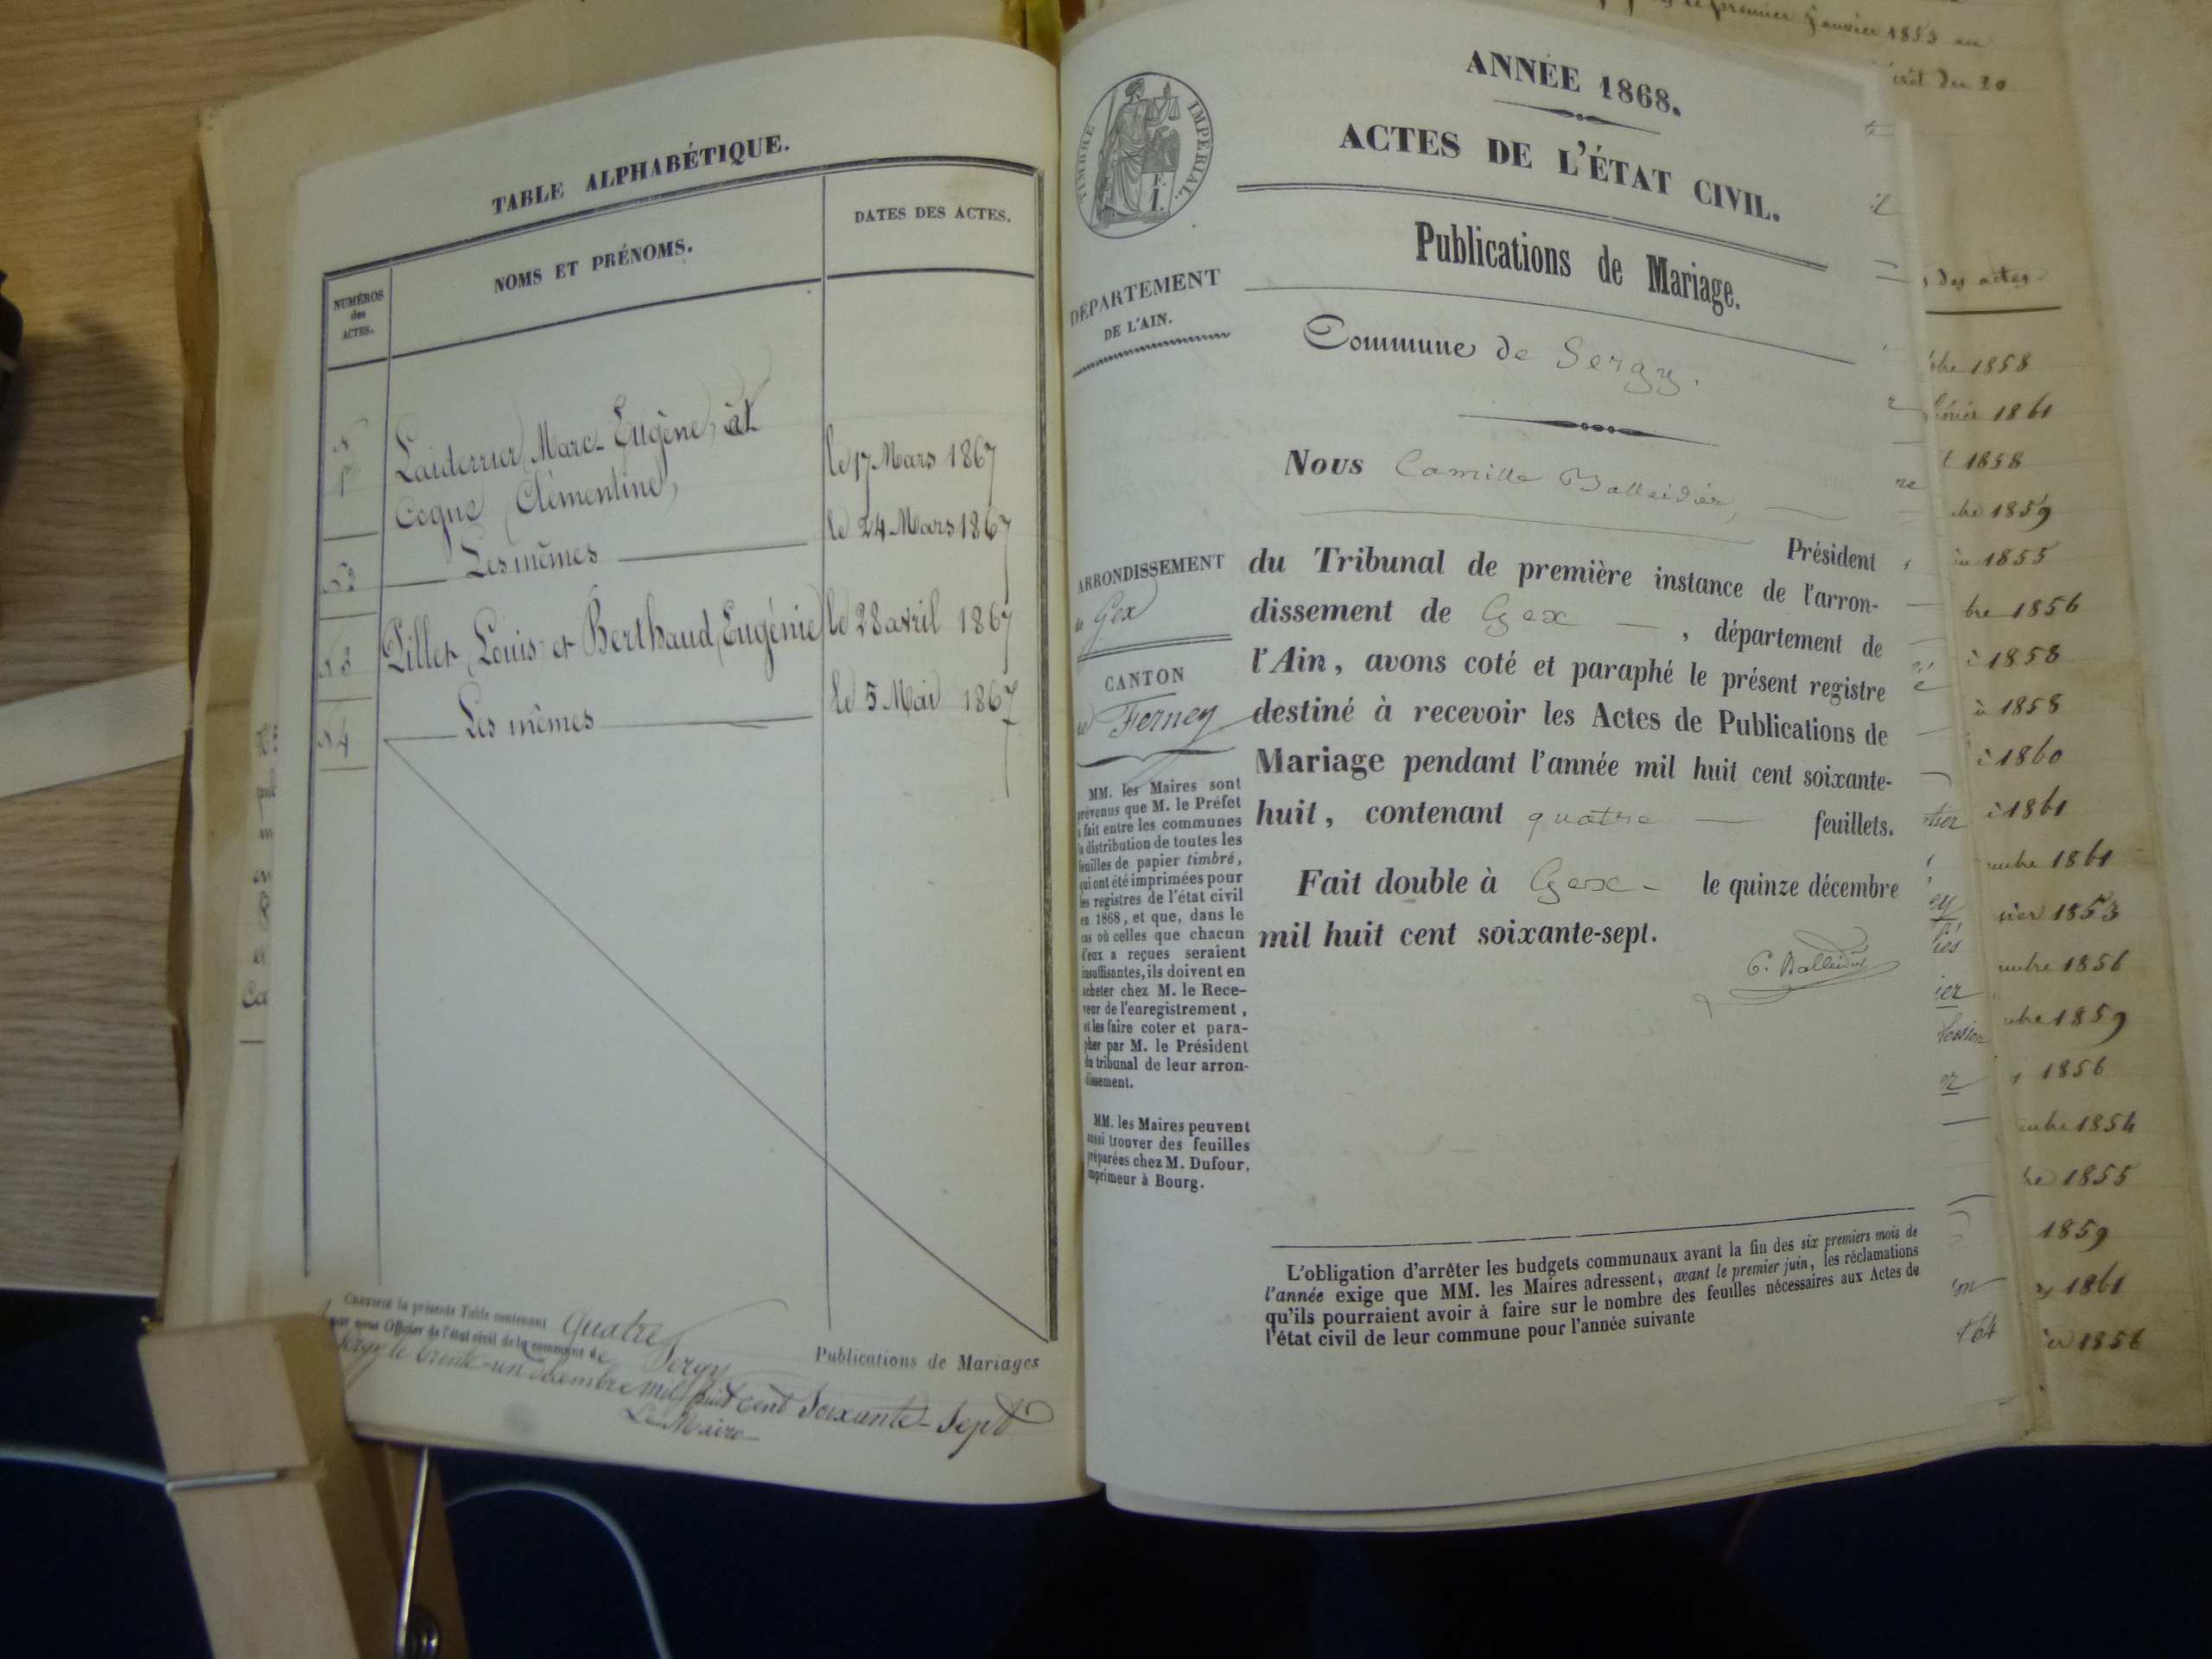 TABLE ALPHABÉTIQUE.
NUMÉROS
des
ACTES.
NOMS ET PRÉNOMS.
DATES DES ACTES.
Laiderrier, Marc-Eugène, et
Coque Clémentine,
le 17 Mars 1867
Les mêmes
le 24 Mars 1867
Pillet, Louis, et Berthaud, Eugénie
le 28 avril 1867
Les mêmes
le 5 Mai 1867
CERTIFIÉ la présente Table contenant Quatre
Publications de Mariages
par nous Officier de l'état civil de la commune de Sergy
Sergy le trente-un décembre mil huit cent Soixante-Sept
Le Maire
TIMBRE IMPÉRIAL.
ANNÉE 1868.
ACTES DE L'ÉTAT CIVIL.
Publications de Mariage.
DÉPARTEMENT
DE L'AIN.
Commune de Sergy.
Nous Camille Balleidier,
Président
ARRONDISSEMENT
de Gex
CANTON
de Ferney
du Tribunal de première instance de l'arron-
dissement de Gex , département de
l'Ain, avons coté et paraphé le présent registre
destiné à recevoir les Actes de Publications de
Mariage pendant l'année mil huit cent soixante-
huit, contenant quatre feuillets.
Fait double à Gex le quinze décembre
mil huit cent soixante-sept.
C. Balleidier
MM. les Maires sont
prévenus que M. le Préfet
a fait entre les communes
la distribution de toutes les
feuilles de papier timbré,
qui ont été imprimées pour
les registres de l'état civil
en 1868, et que, dans le
cas où celles que chacun
d'eux a reçues seraient
insuffisantes, ils doivent en
acheter chez M. le Rece-
veur de l'enregistrement,
et les faire coter et para-
pher par M. le Président
du tribunal de leur arron-
dissement.
MM. les Maires peuvent
aussi trouver des feuilles
préparées chez M. Dufour,
imprimeur à Bourg.
L'obligation d'arrêter les budgets communaux avant la fin des six premiers mois de
l'année exige que MM. les Maires adressent, avant le premier juin, les réclamations
qu'ils pourraient avoir à faire sur le nombre des feuilles nécessaires aux Actes de
l'état civil de leur commune pour l'année suivante
premier janvier 1853 au
du 20
des actes
1858
1861
1858
1859
1855
1856
1858
1858
1860
1861
1861
1853
1856
1859
1856
1854
1855
1859
1861
1856